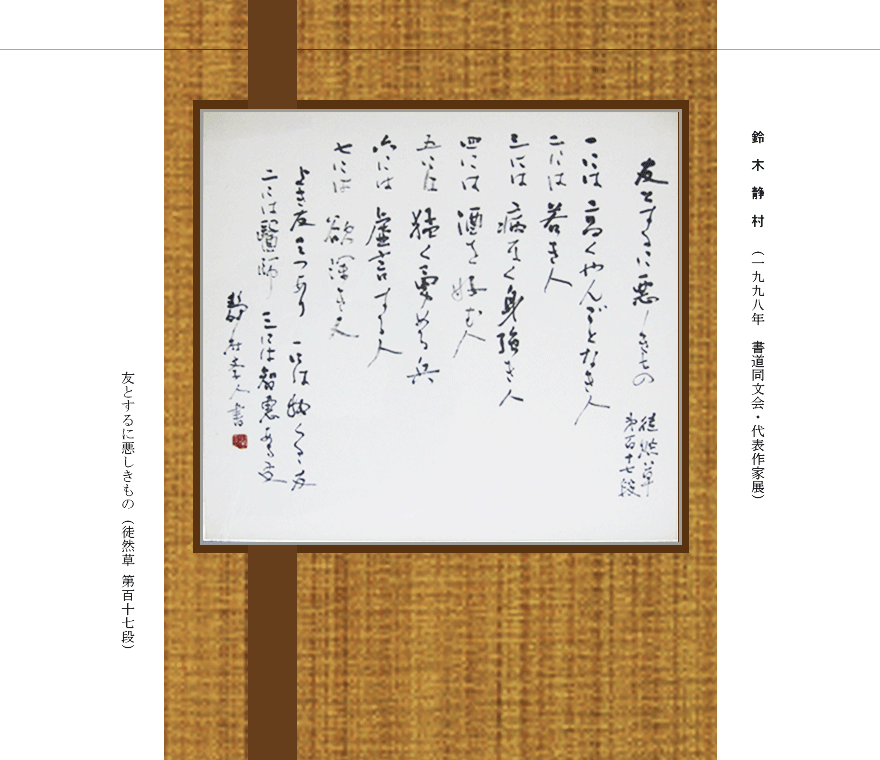 鈴木静村 （一九九八年 書道同文会・代表作家展）
友とするに悪しきもの 徒然草
第百十七段
一には 高くやんごとなき人
二には 若き人
三には 病なく身強き人
四には 酒を好む人
五には 猛く勇める兵
六には 虚言する人
七には 欲深き人
よき友三つあり 一には物くるゝ友
二には醫師 三には智恵ある友
静村 書
友とするに悪しきもの（徒然草 第百十七段）